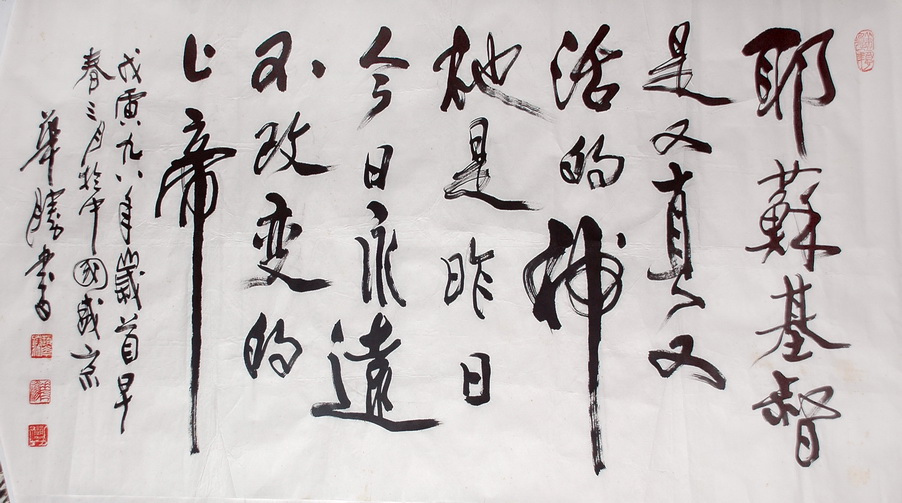 耶蘇基督
是又真又
活的神
祂是昨日
今日永遠
不改变的
上帝
戊寅九八年歲首早
春三月於中國成京
華勝書